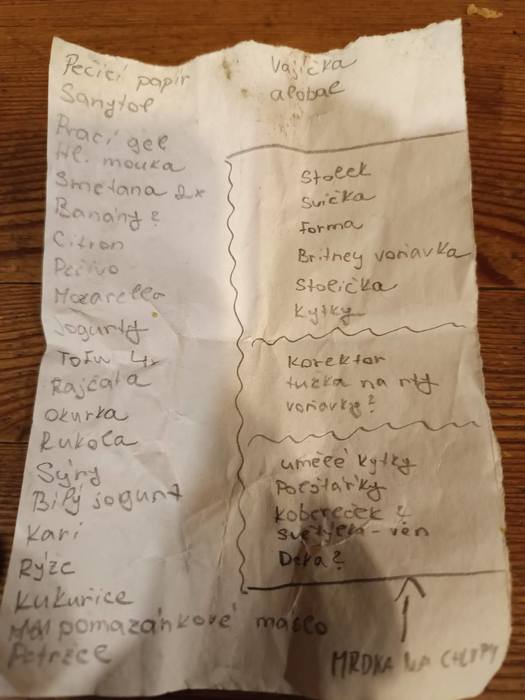 Pečicí papír
Sanytol
Prací gel
Hl. mouka
Smetana 2x
Banány ?
Citron
Pečivo
Mozarella
Jogurty
Tofu 4x
Rajčata
Okurka
Rukola
Sýry
Bílý jogurt
Kari
Rýže
Kukuřice
pomazánkové máslo
Petržel
Vajíčka
alobal
Stolek
Svíčka
Forma
Britney voňavka
Stolička
Kytky
Korektor
tužka na rty
voňavky?
umělé kytky
Polštářky
Kobereček ?
Světýlka - ven
Deka?
MRDKA NA CHLUPY